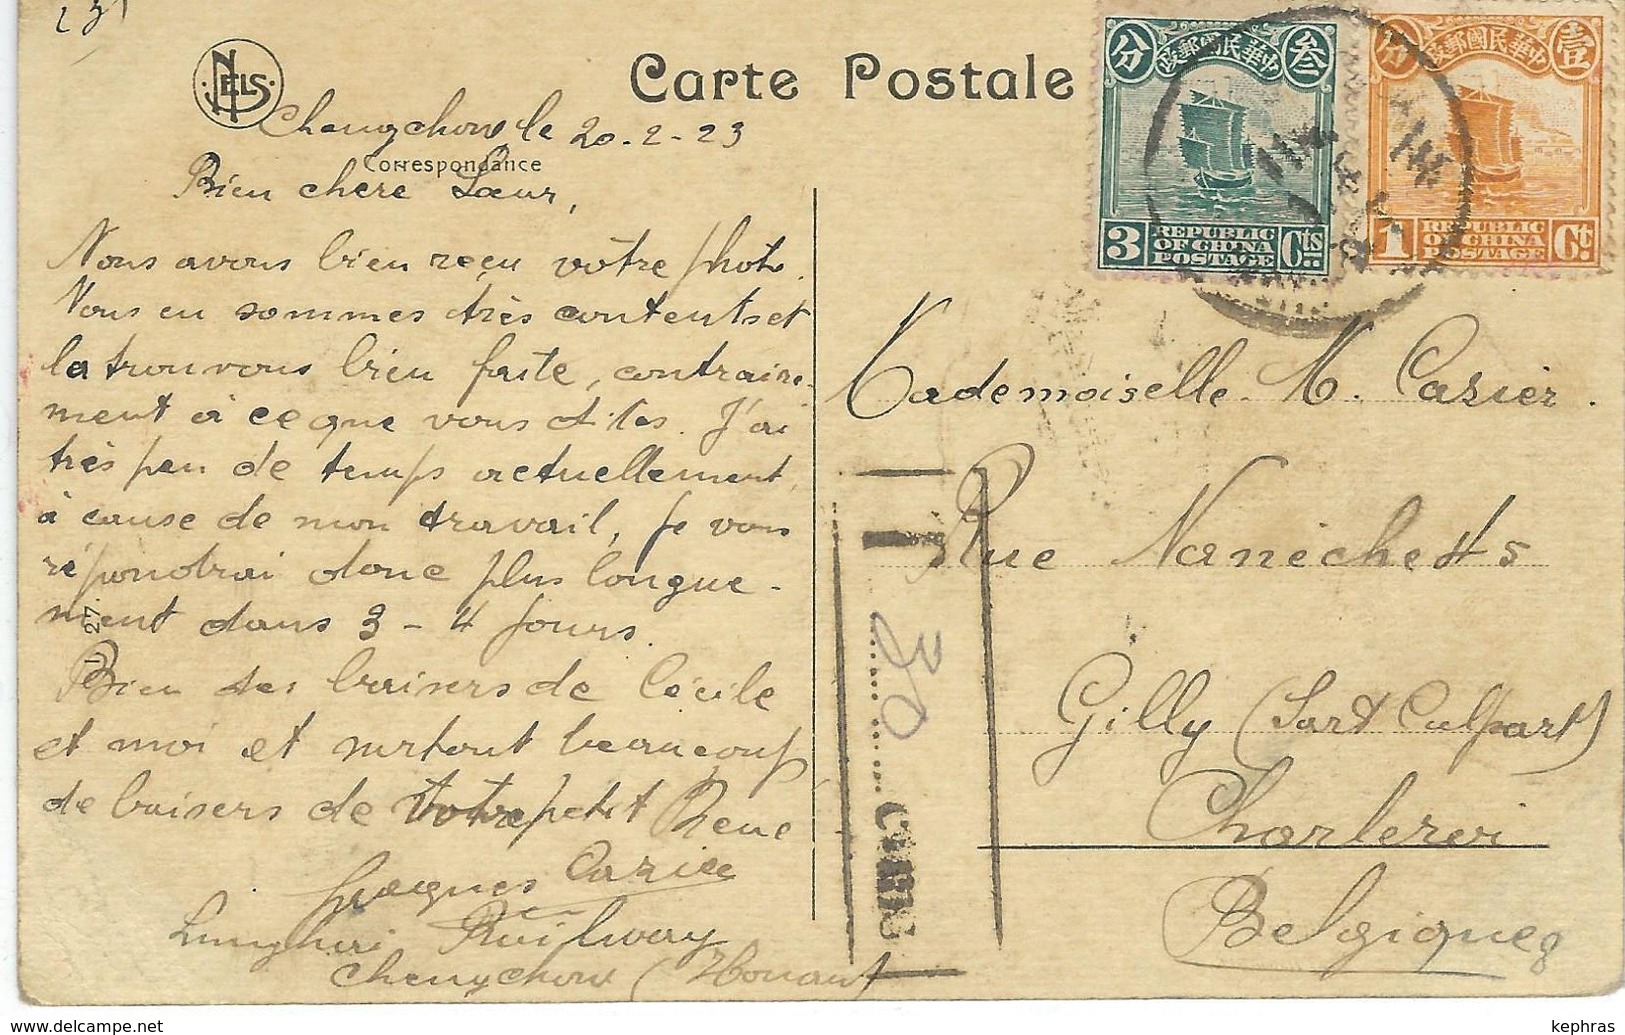 231
NELS
Carte Postale
Chengchow le 20-2-23
Correspondance
Bien chère Sœur,
Nous avons bien reçu vôtre photo.
Nous en sommes très contents et
la trouvons bien faite, contraire-
ment à ce que vous dites. J'ai
très peu de temps actuellement,
à cause de mon travail, je vous
répondrai donc plus longue-
ment dans 3 - 4 jours.
Bien des baisers de Cécile
et moi et surtout beaucoup
de baisers de votre petit René
Jacques Casier
Lunghai Railway
Chengchow (Honan)
27
中華民國郵政
分 叁
3 REPUBLIC OF CHINA POSTAGE Cts
中華民國郵政
分 壹
1 REPUBLIC OF CHINA POSTAGE Ct
Mademoiselle M. Casier.
Rue Nanechetts
Gilly (Sart Culpart)
Charleroi
Belgique
T
20
CTMS
www.delcampe.net
kephras